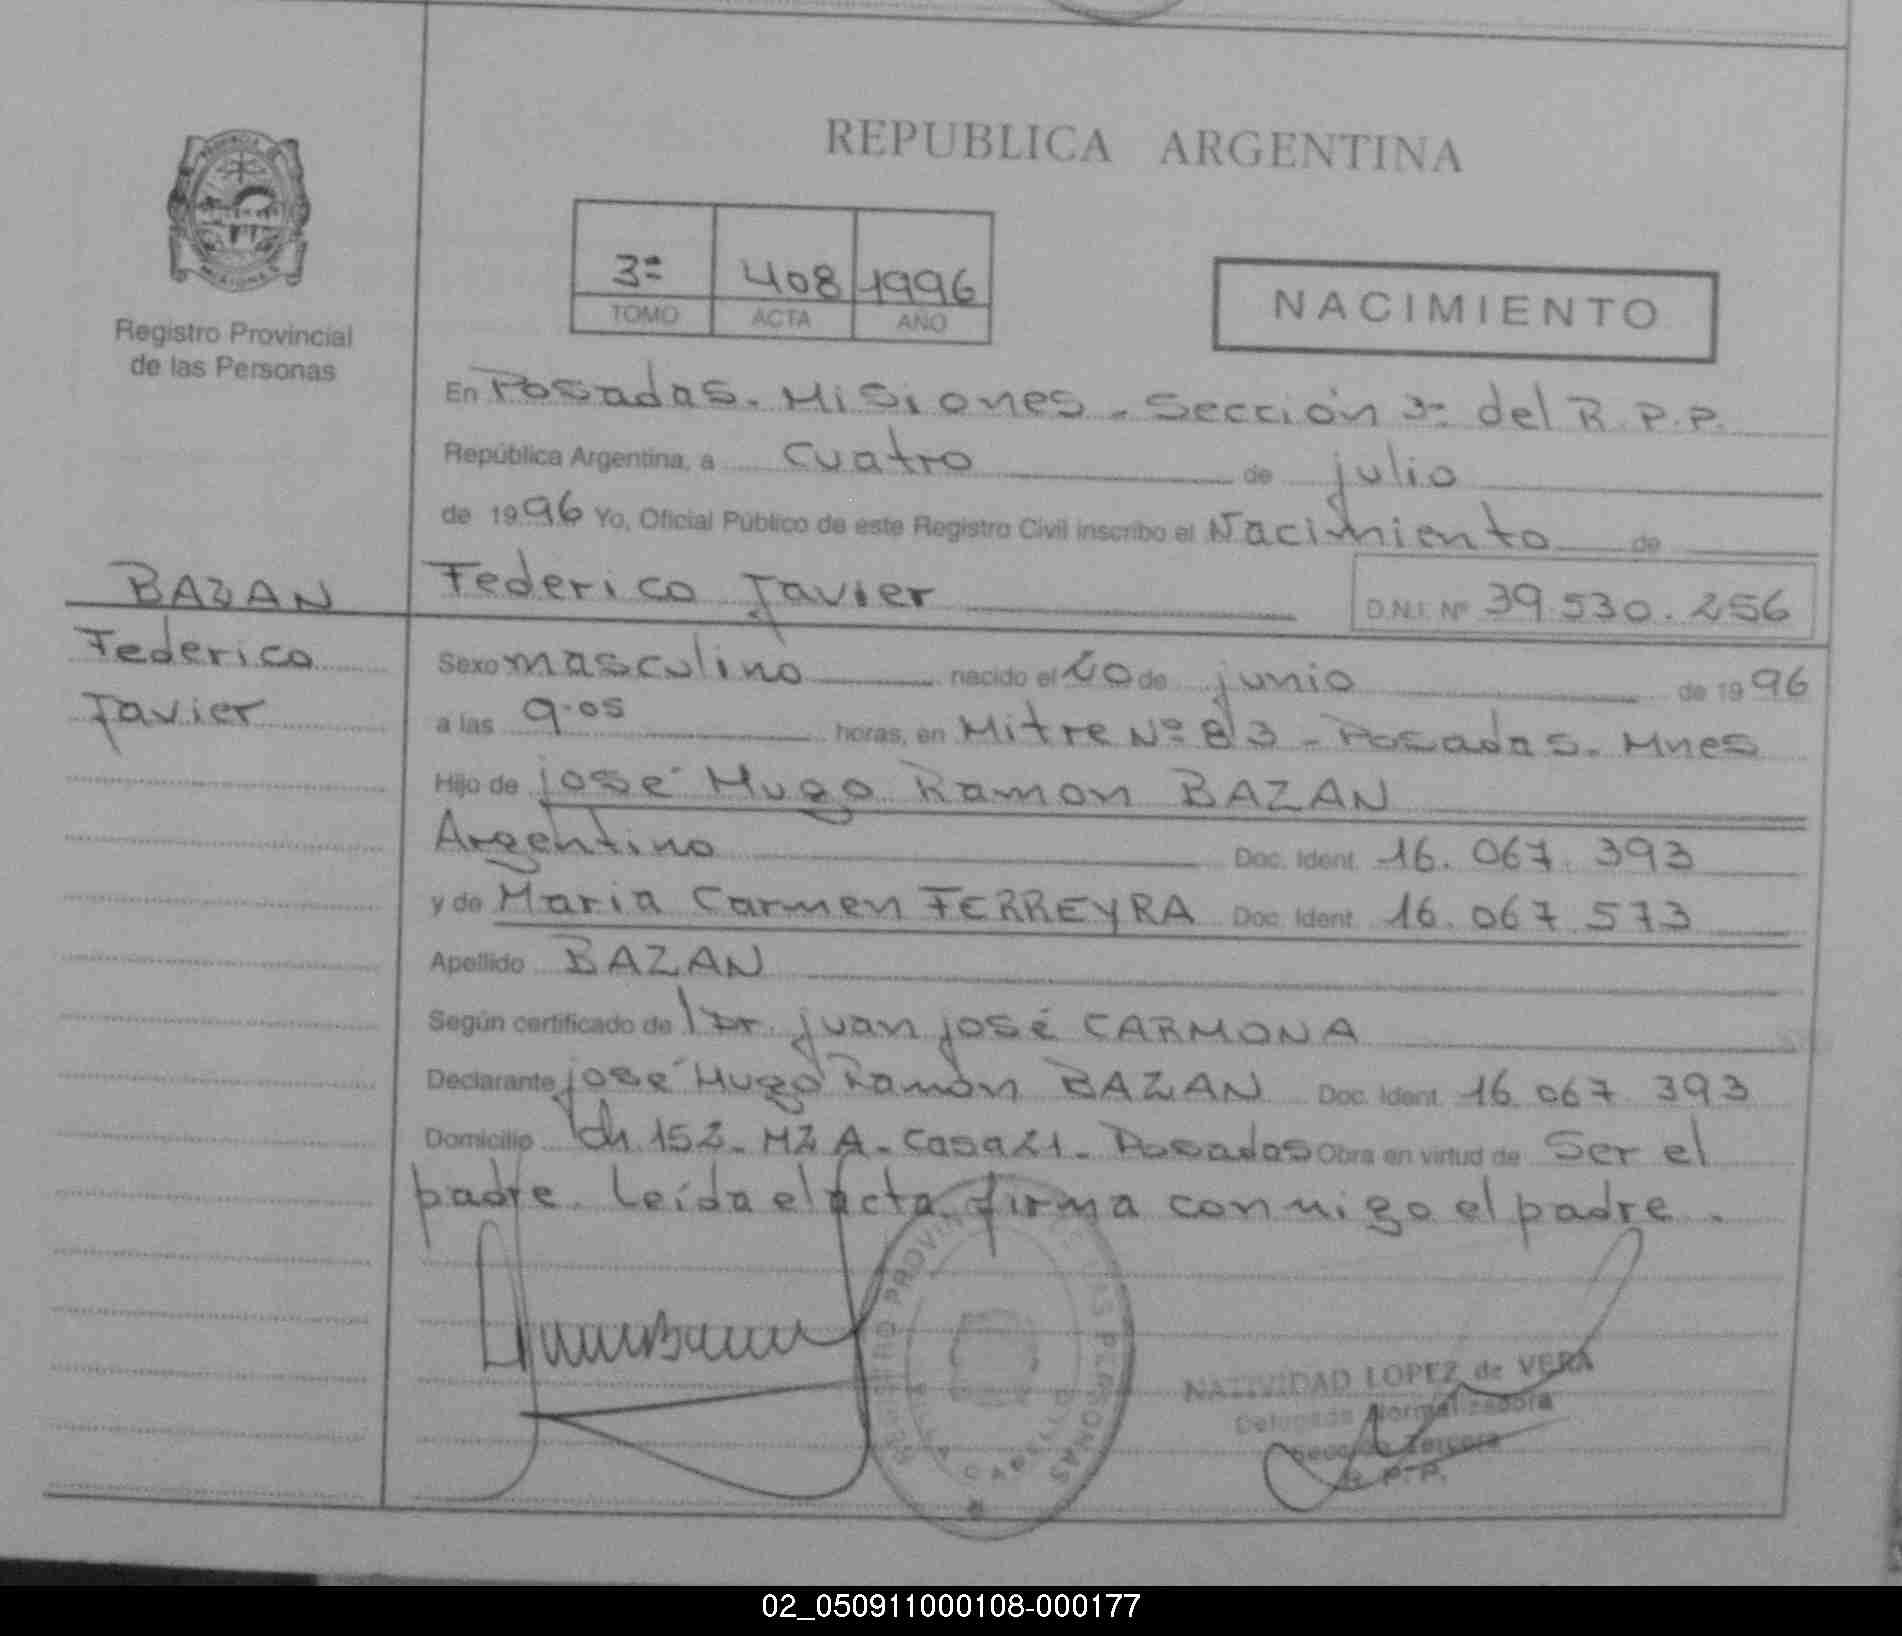 REPUBLICA ARGENTINA
Registro Provincial
de las Personas
3ª 408 1996
TOMO ACTA AÑO
NACIMIENTO
En Posadas. Misiones. Sección 3ª del R.P.P.
República Argentina, a cuatro de julio
de 1996 Yo, Oficial Público de este Registro Civil inscribo el Nacimiento de
BAZAN
Federico
Javier
Federico Javier D.N.I. Nº 39.530.256
Sexo masculino nacido el 20 de junio de 1996
a las 9.05 horas, en Mitre Nº 83 - Posadas. Mnes
Hijo de josé Hugo Ramon BAZAN
Argentino Doc. Ident. 16.067.393
y de Maria Carmen FERREYRA Doc. Ident. 16.067.573
Apellido BAZAN
Según certificado de Dr. juan josé CARMONA
Declarante josé Hugo Ramón BAZAN Doc. Ident. 16.067.393
Domicilio ch.152- MZ A- Casa 21- Posadas Obra en virtud de Ser el
padre. Leída el acta firma conmigo el padre.
REGISTRO PROVINCIAL DE LAS PERSONAS
NATIVIDAD LOPEZ de VERA
Delegada Normalizadora
Sección Tercera
R.P.P.
02_050911000108-000177